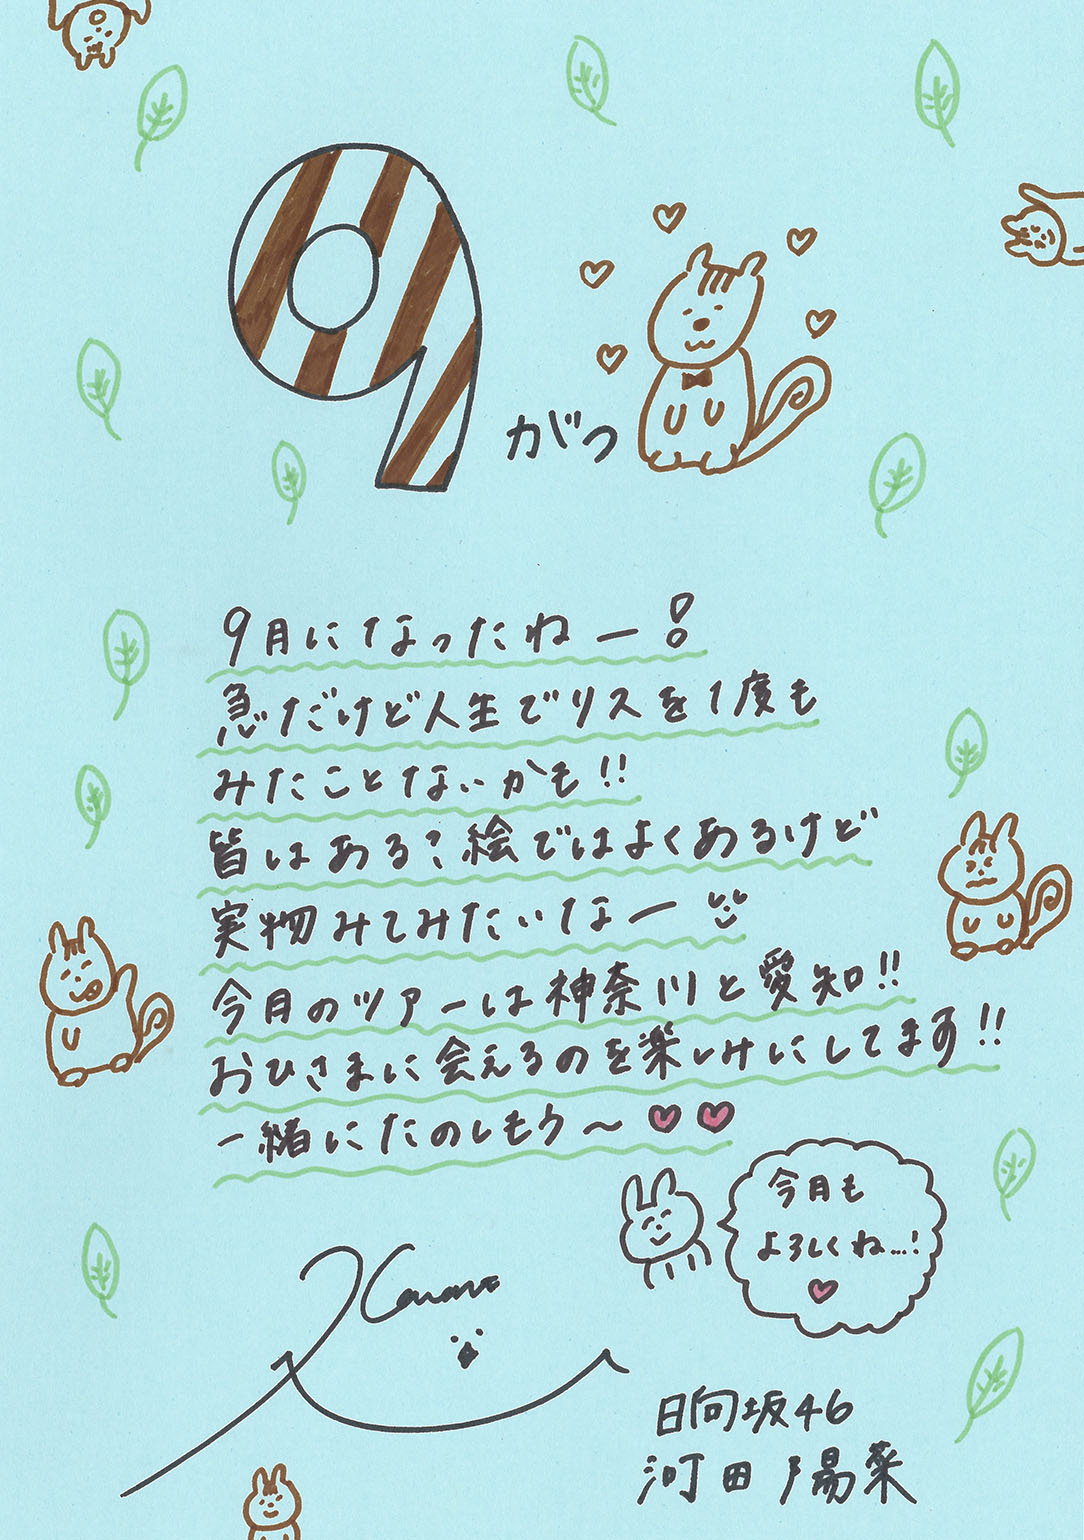 9がつ
9月になったねー!
急だけど人生でリスを1度も
みたことないかも!!
皆はある?絵ではよくあるけど
実物みてみたいなー
今月のツアーは神奈川と愛知!!
おひさまに会えるのを楽しみにしてます!!
一緒にたのしもう〜
今月も
よろしくね...!
Kawawe
日向坂46
河田陽菜